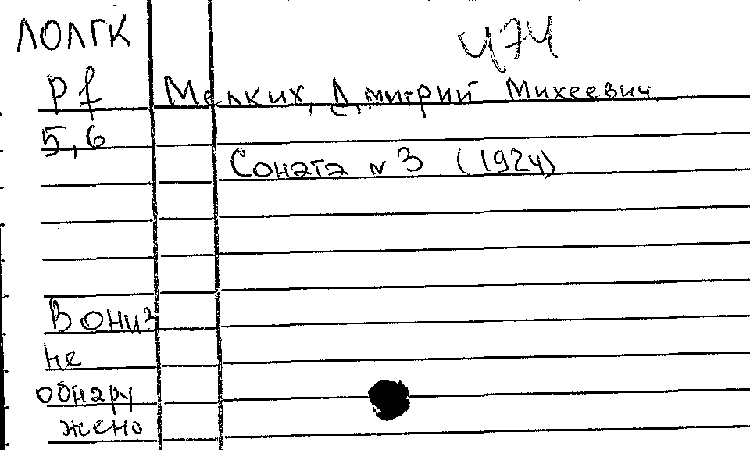 ЛОЛГК
474
Pf Мелких, Дмитрий Михеевич
5,6
Соната N 3 (1924)
В ОНИЗ
не
обнару
жено